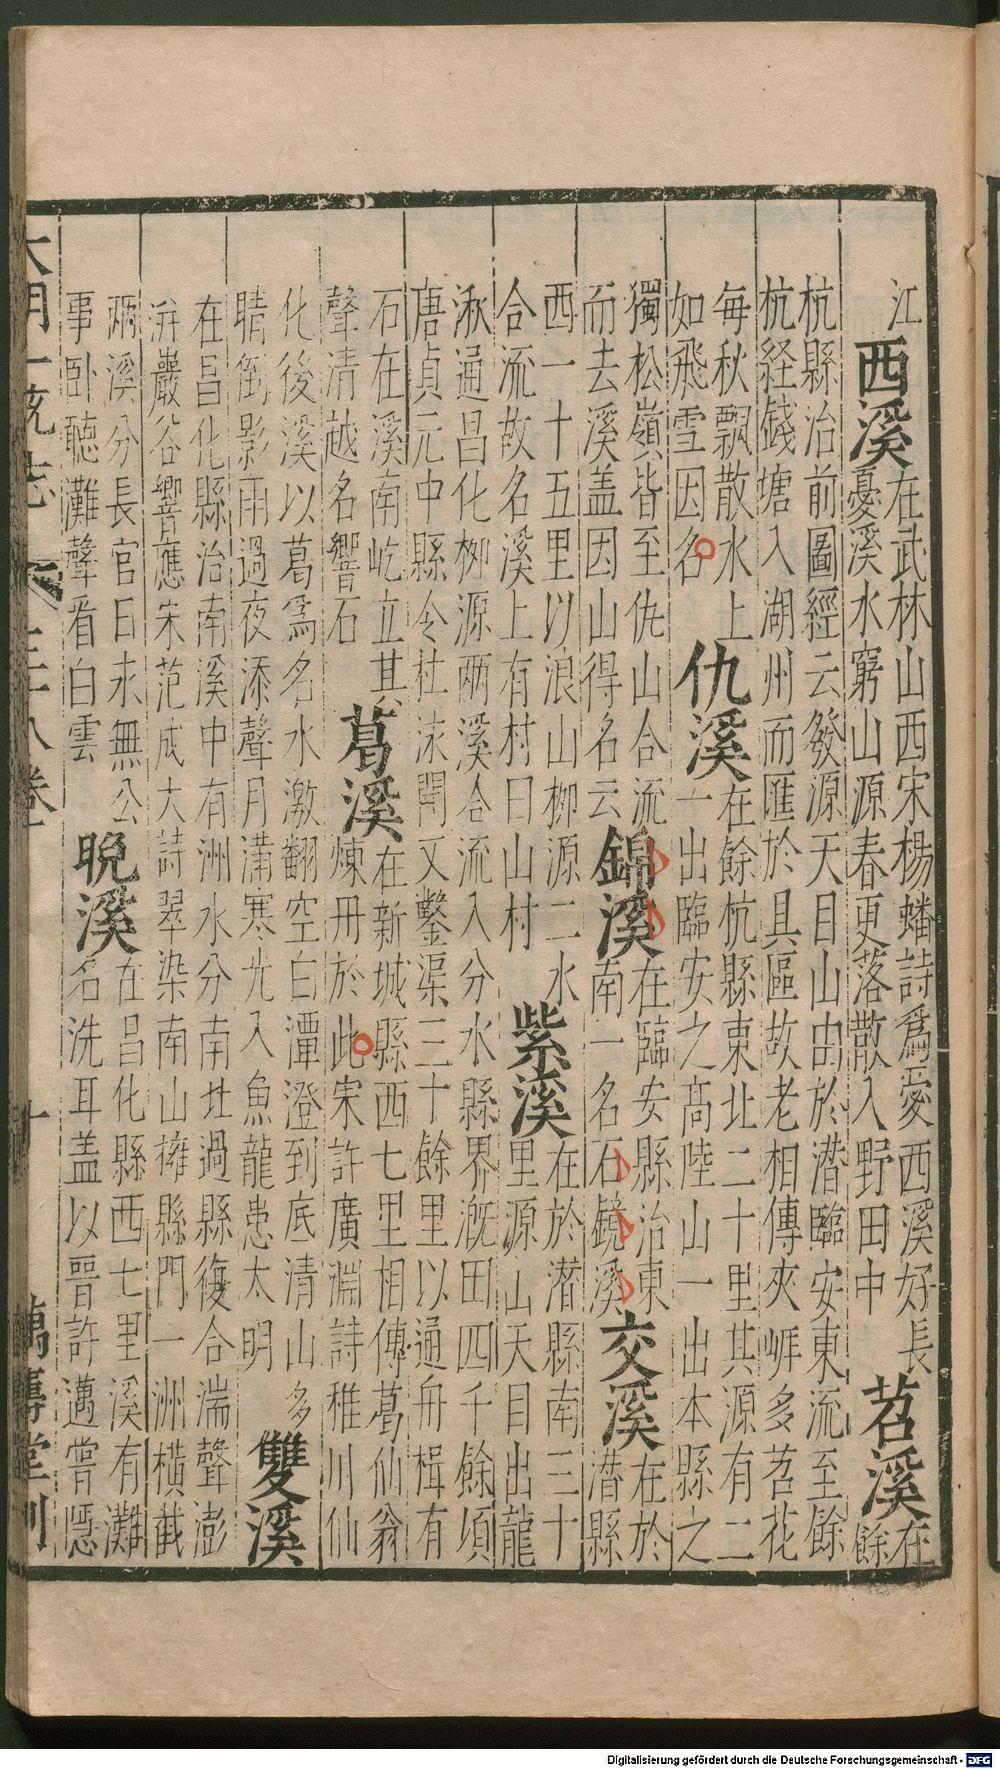 江西溪在武林山西宋楊蟠詩為愛西溪好長憂溪水窮山源春更落散入野田中苕溪在餘
杭縣治前圖經云發源天目山由於潛臨安東流至餘
杭经錢塘入湖州而匯於具區故老相傳夾崕多苕花
每秋飄散水上如飛雪因名仇溪在餘杭縣東北二十里其源有二一出臨安之高陸山一出本縣之
獨松嶺皆至仇山合流而去溪盖因山得名云錦溪在臨安縣治東南一名石鏡溪交溪在於潛縣
西一十五里以浪山栁源二水合流故名溪上有村曰山村紫溪在於潛縣南三十里源山天目出龍
湫通昌化栁源兩溪合流入分水縣界溉田四千餘頃
唐貞元中縣令杜泳開又鑿渠三十餘里以通舟楫有
石在溪南屹立其聲清越名響石葛溪在新城縣西七里相傳葛仙翁煉丹於此宋許廣淵詩稚川仙
化後溪以葛為名水激翻空白潭澄到底清山多晴倒影雨過夜添聲月滿寒光入魚龍患太明雙溪
在昌化縣治南溪中有洲水分南北過縣復合湍聲澎
湃巖谷響應宋范成大詩翠染南山擁縣門一洲橫截
兩溪分長官日永無公事卧聽灘聲看白雲晩溪在昌化縣西七里溪有灘名洗耳盖以晉許邁嘗隱
大明一統志 三十八卷 十 萬壽堂刊
Digitalisierung gefördert durch die Deutsche Forschungsgemeinschaft - DFG